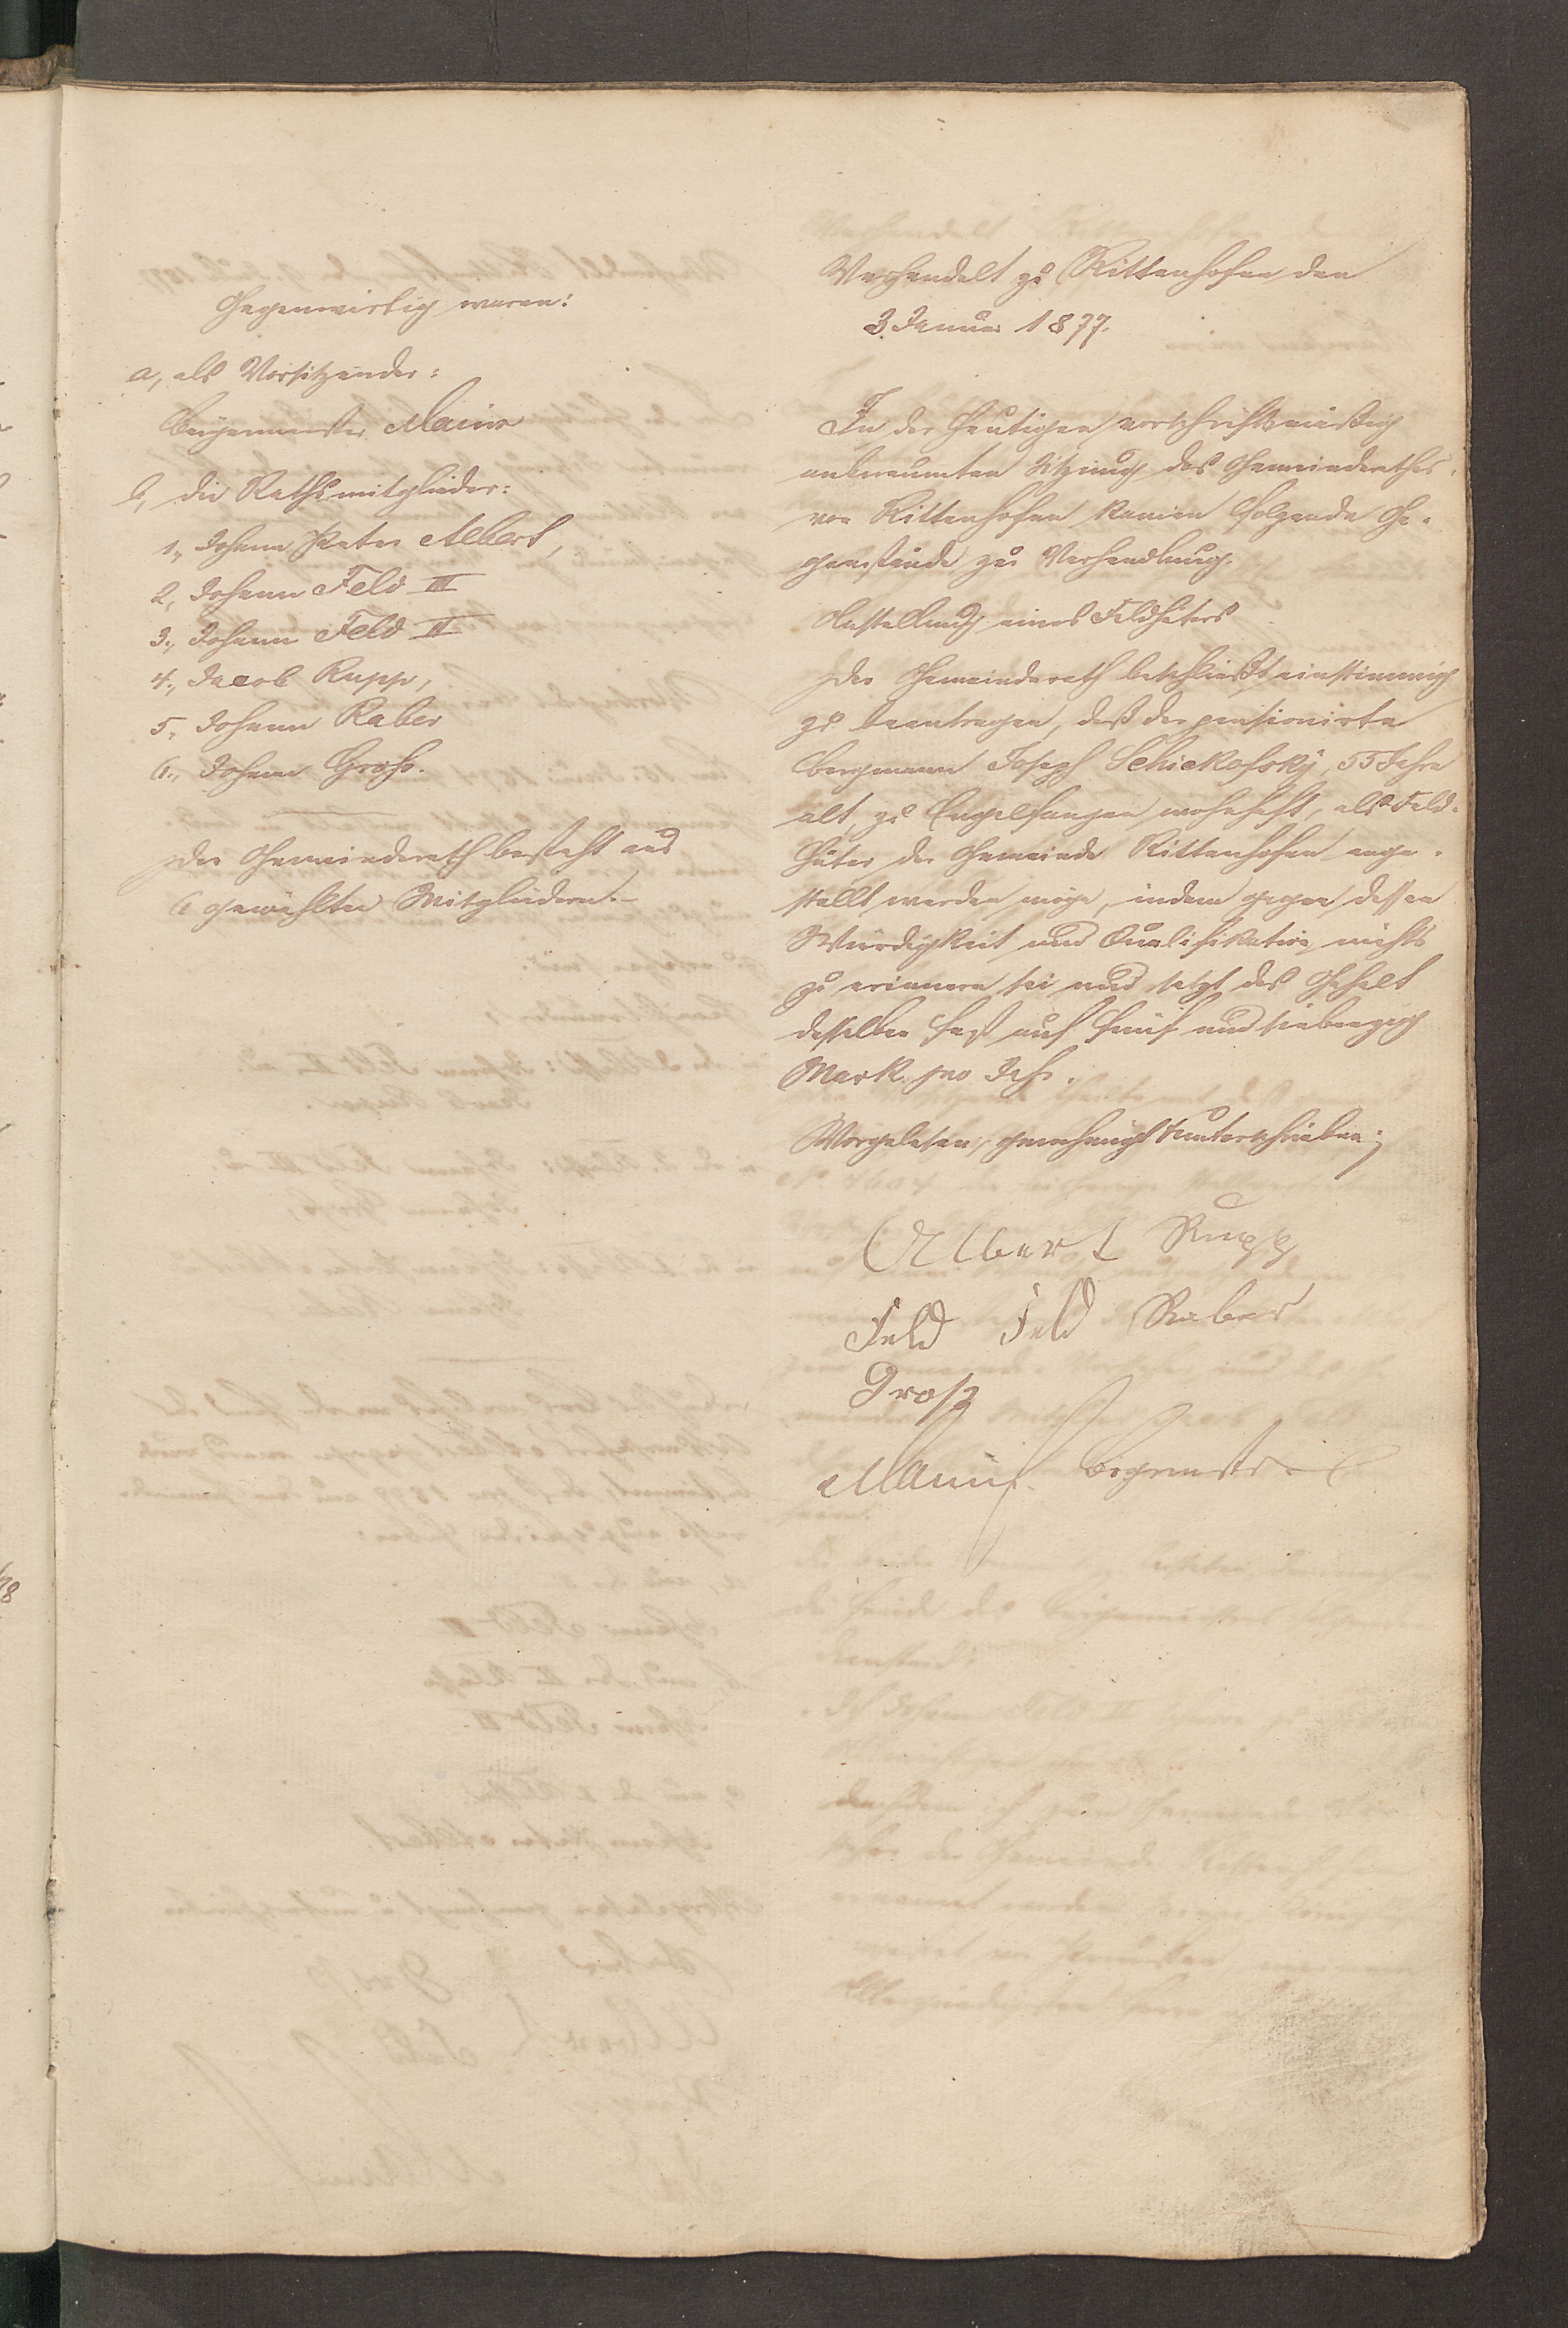 Gegenwärtig waren:
a, als Vorsitzender:
Bürgermeister Maurer
b, die Rathsmitglieder:
1., Johann Peter Albert,
2, Johann Feld III
3., Johann Feld II
4., Jacob Rupp,
5, Johann Raber
6., Johann Groß.
Der Gemeinderath besteht aus
6 gewählten Mitgliedern.-
Verhandelt zu Rittenhofen den
3 Januar 1877.
In der heutigen vorschriftsmäßig
anberaumten Sitzung des Gemeinderathes
von Rittenhofen kamen folgende Ge-
genstände zur Verhandlung.
Anstellung eines Feldhüters
Der Gemeinderath beschließt einstimmig
zu beantragen, daß der pensionirte
Bergmann Joseph Schickofsky, 55 Jahre
alt, zu Engelfangen wohnhaft, als Feld-
hüter der Gemeinde Rittenhofen ange-
stellt werden möge, indem gegen dessen
Würdigkeit und Qualifikation nichts
zu erinnern sei und setzt das Gehalt
desselben fest auf fünf und siebenzig
Mark pro Jahr.
Vorgelesen, genehmigt & unterschrieben;
Albert Rupp
Feld Feld Raber
Groß